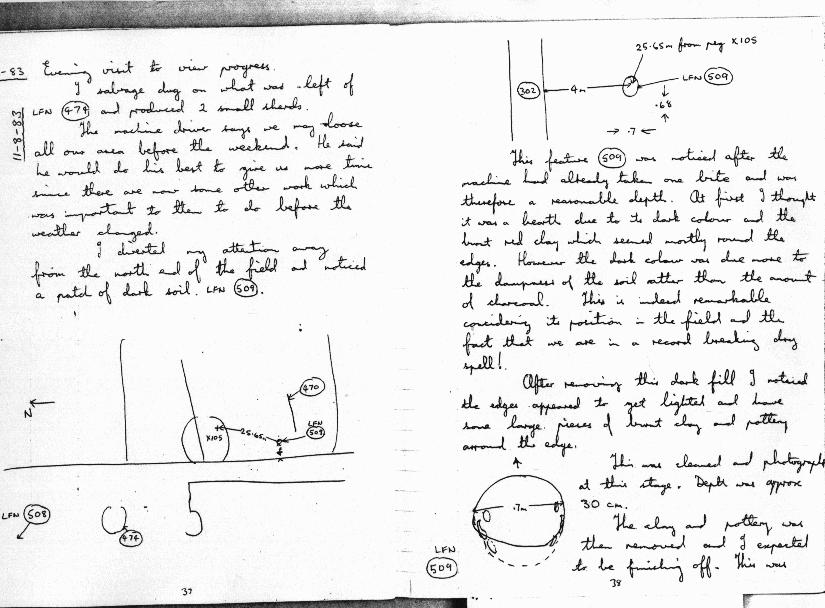 -83 Evening visit to view progress.
I salvage dug on what was left of
11-8-83
LFN 474 and produced 2 small sherds.
The machine driver says we may loose
all our area before the weekend. He said
he would do his best to give us more time
since there are now some other work which
was important to them to do before the
weather changed.
I diverted my attention away
from the north end of the field and noticed
a patch of dark soil. LFN 509.
N
470
X105
25.65m
LFN
509
LFN 508
474
37
25.65m from peg X105
302
4m
LFN 509
.68
.7
This feature 509 was noticed after the
machine had already taken one bite and was
therefore a reasonable depth. At first I thought
it was a hearth due to its dark colour and the
burnt red clay which seemed mostly round the
edges. However the dark colour was due more to
the dampness of the soil rather than the amount
of charcoal. This is indeed remarkable
considering its position in the field and the
fact that we are in a record breaking dry
spell!
After removing this dark fill I noticed
the edges appeared to get lighter and have
some large pieces of burnt clay and pottery
around the edge.
This was cleaned and photograph
at this stage. Depth was approx
30 cm.
.7m
The clay and pottery was
then removed and I expected
LFN
509
to be finishing off. This was
38